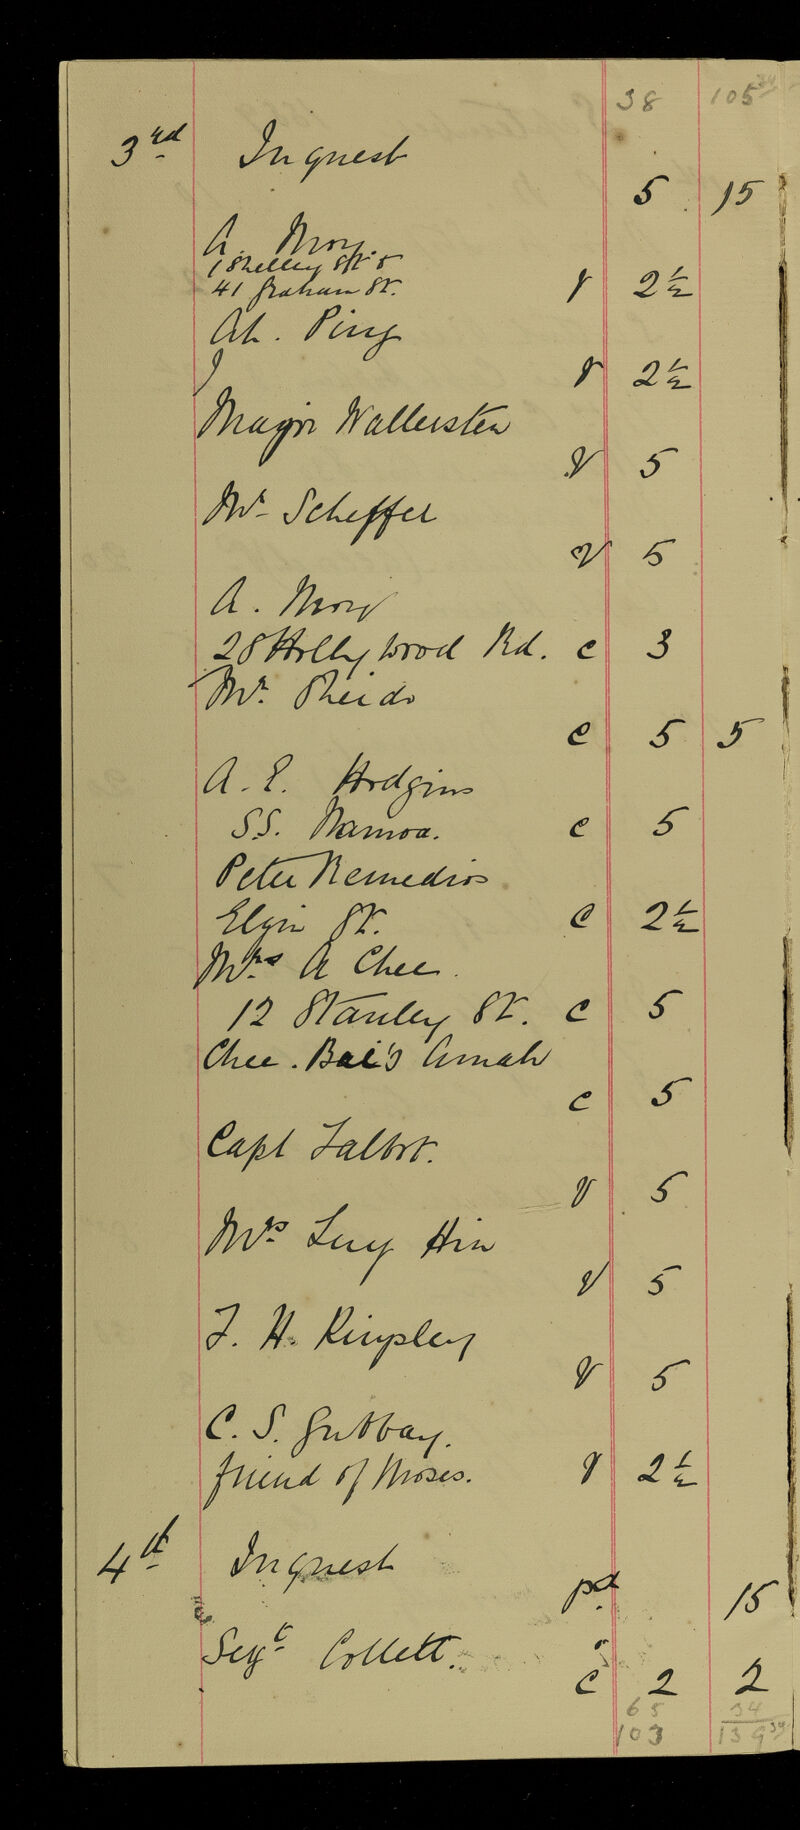 38 105 34
3rd Inquest
5 15
A. Moy
1 Shelley St &
41 Graham St. V 2½
Ah. Ping
V 2½
Major Wallersten
V 5
Mr Scheffer
V 5
A. Moy
28 Hollywood Rd. C 3
Mr.
C 5 5
A. E. Hodgins
S.S. Namoa. C 5
Peter Remedios
Elgin St. C 2½
Mrs A Chee.
12 Stanley St. C 5
Chee. Bai's Amah
C 5
Capt Talbot.
V 5
Mrs Luy Hin
V 5
F. H. Kingsley
V 5
C. S. Gubbay.
friend of Moses. V 2½
4th Inquest
pd. 15
Segt Collett.
C 2 2
65 34
103 139 34